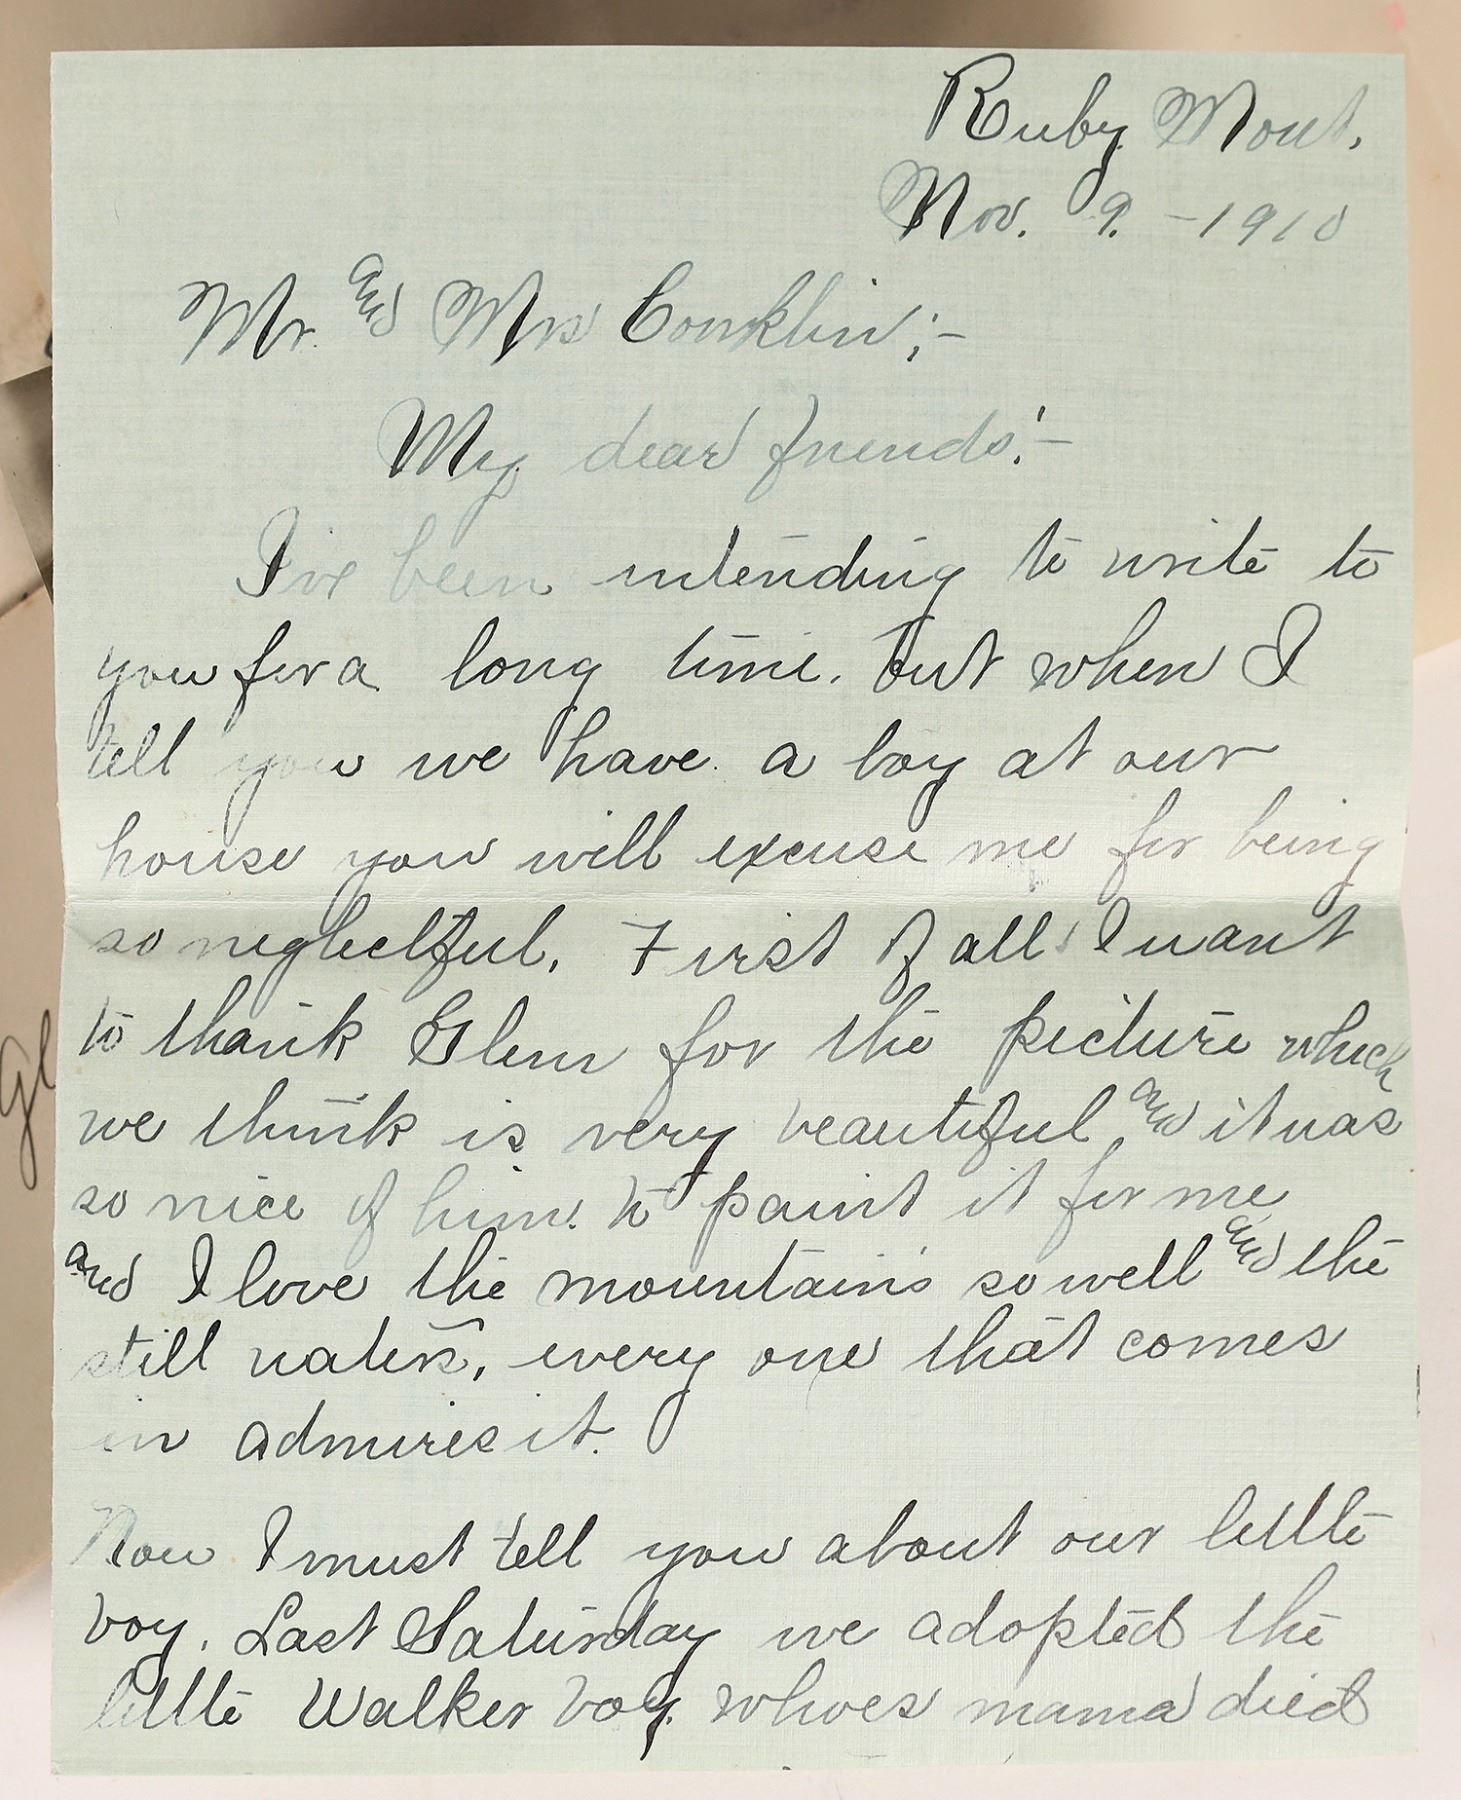 Ruby Mont.
Nov. 9. - 1910
Mr. and Mrs Conklin;-
My dear friends:-
I've been intending to write to
you for a long time. but when I
tell you we have a boy at our
house you will excuse me for being
so neglectful. First of all I want
to thank Glenn for the picture which
we think is very beautiful, and it was
so nice of him to paint it for me
and I love the mountains so well and the
still waters, every one that comes
in admires it.
Now I must tell you about our little
boy. Last Saturday we adopted the
little Walker boy. whoes mama died
gl